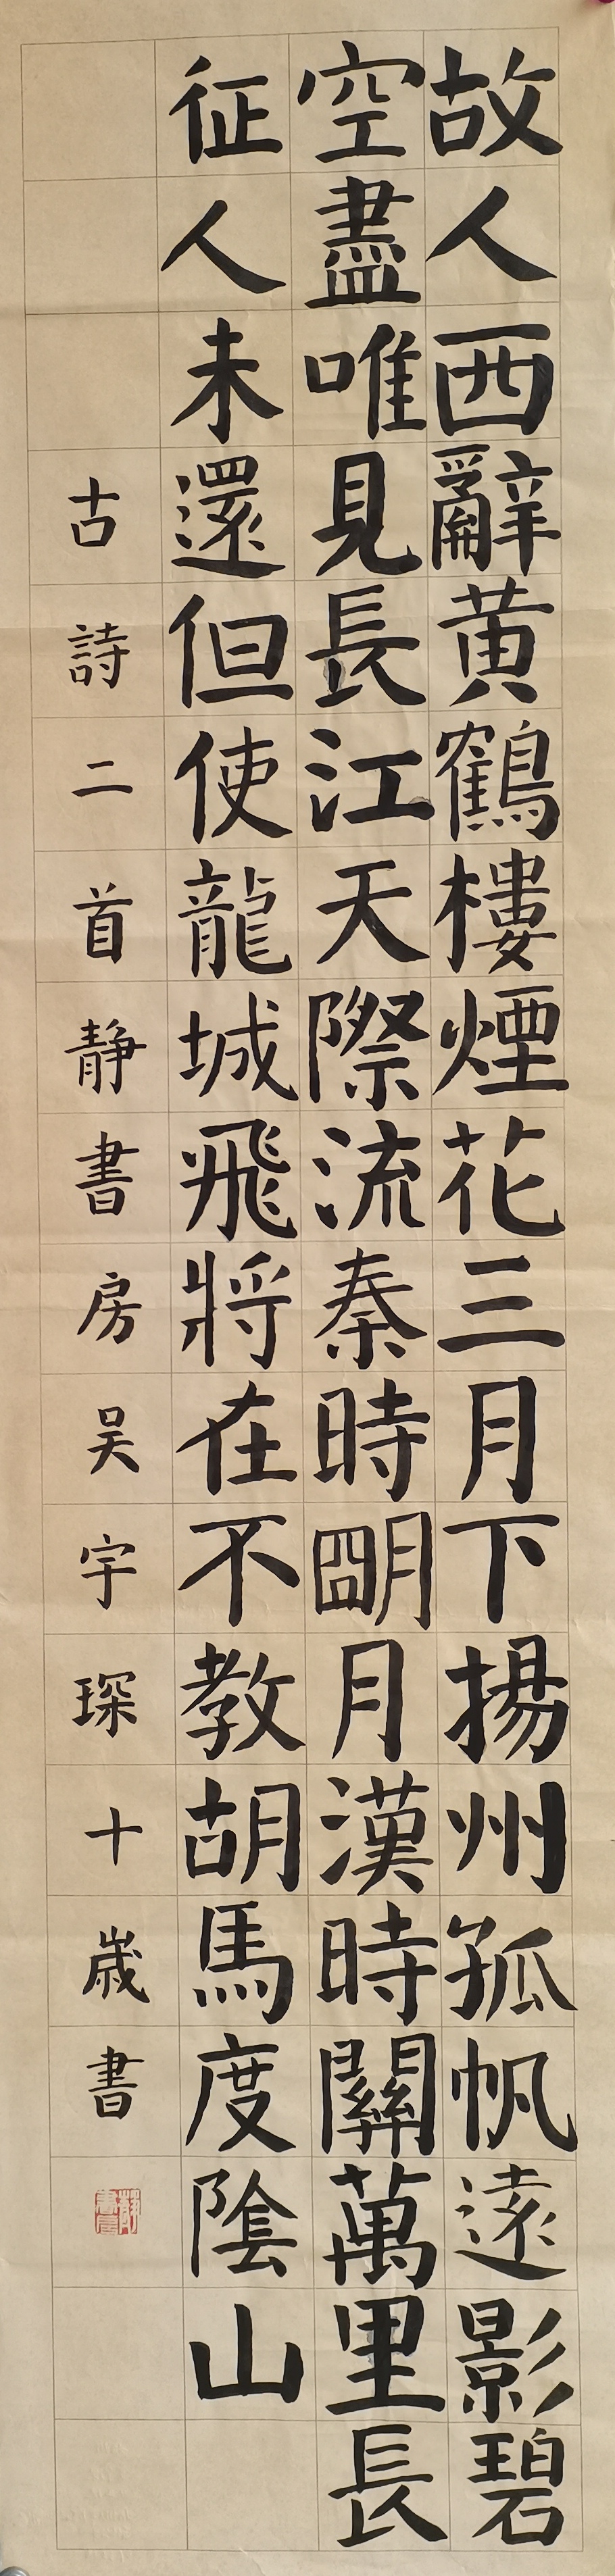 故人西辭黄鶴樓煙花三月下揚州孤帆遠影碧
空盡唯見長江天際流秦時朙月漢時關萬里長
征人未還但使龍城飛將在不教胡馬度陰山
古詩二首静書房吴宇琛十歲書